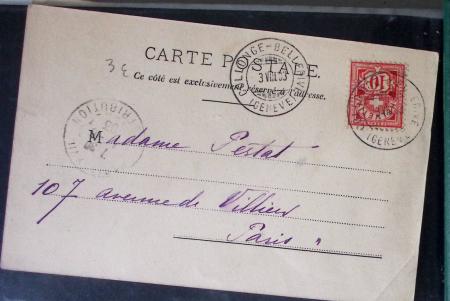 3 €
CARTE POSTALE.
Ce côté est exclusivement réservé à l'adresse.
COLLONGE-BELLERIVE
3 VIII 03
(GENÈVE)
10
(GENÈVE)
DISTRIBUTION
Madame Pestat
107 avenue de Villiers
Paris "